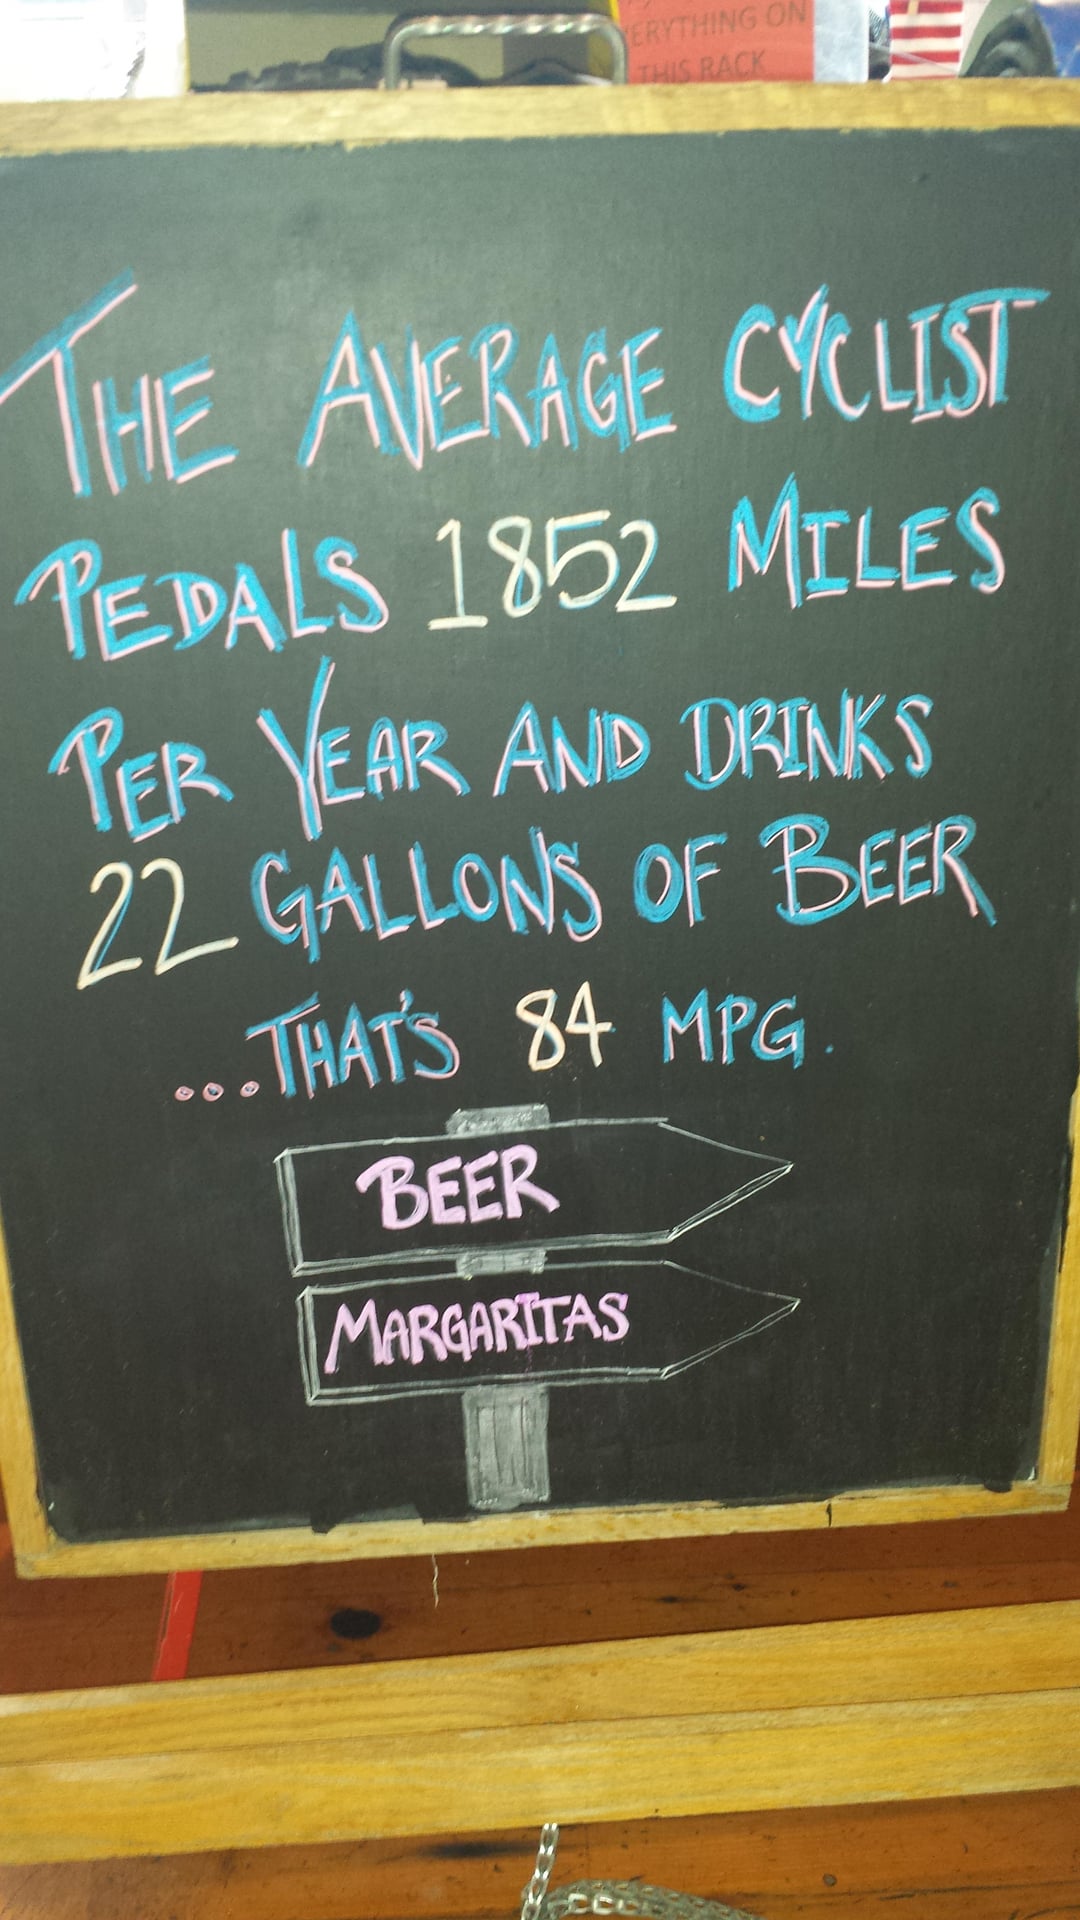 ERYTHING ON
THIS RACK
THE AVERAGE CYCLIST
PEDALS 1852 MILES
PER YEAR AND DRINKS
22 GALLONS OF BEER
....THAT'S 84 MPG.
BEER
MARGARITAS